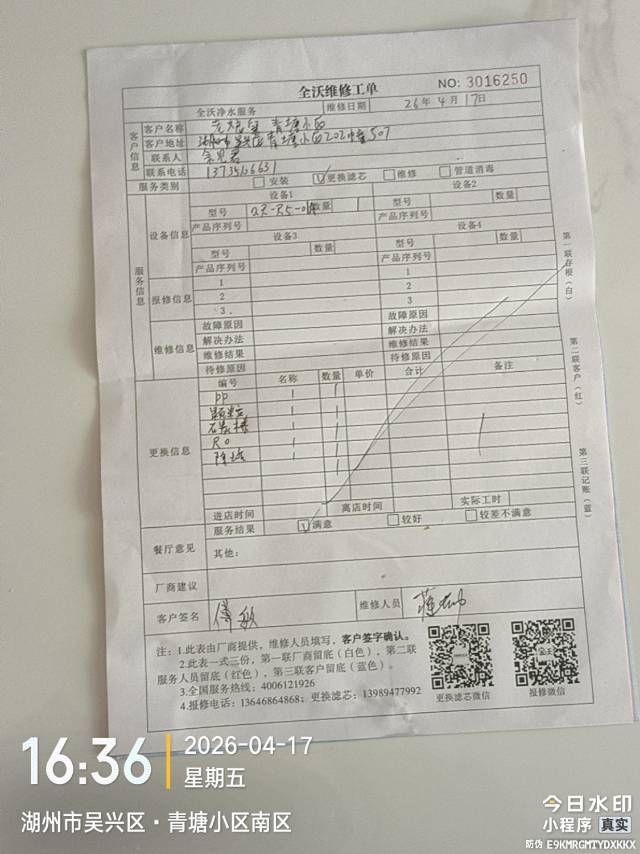 全沃维修工单
NO: 3016250
全沃净水服务 维修日期 26年4月17日
客户信息
客户名称 青塘小区
客户地址 湖州市吴兴区青塘小区202幢507
联系人
联系电话
服务类别 安装 更换滤芯 维修 管道消毒
服务信息
设备信息
设备1 设备2
型号 数量 1 型号 数量
产品序列号 产品序列号
设备3 设备4
型号 数量 型号 数量
产品序列号 产品序列号
报修信息
1 1
2 2
3. 3
维修信息
故障原因 故障原因
解决办法 解决办法
维修结果 维修结果
待修原因 待修原因
更换信息
编号 名称 数量 单价 合计 备注
PP 1 1
颗粒 1 1
1 1
RO 1 1
1 1
进店时间 离店时间 实际工时
服务结果 满意 较好 较差不满意
餐厅意见 其他:
厂商建议
客户签名 维修人员
注: 1.此表由厂商提供,维修人员填写,客户签字确认。
2.此表一式三份,第一联厂商留底(白色),第二联
服务人员留底(红色),第三联客户留底(蓝色)。
3.全国服务热线: 4006121926
4.报修电话: 13646864868; 更换滤芯: 13989477992
更换滤芯微信 报修微信
第一联存根(白)
第二联客户(红)
第三联记账(蓝)
16:36
2026-04-17
星期五
湖州市吴兴区·青塘小区南区
今日水印
小程序 真实
防伪 E9KMRGMTYDXKKX